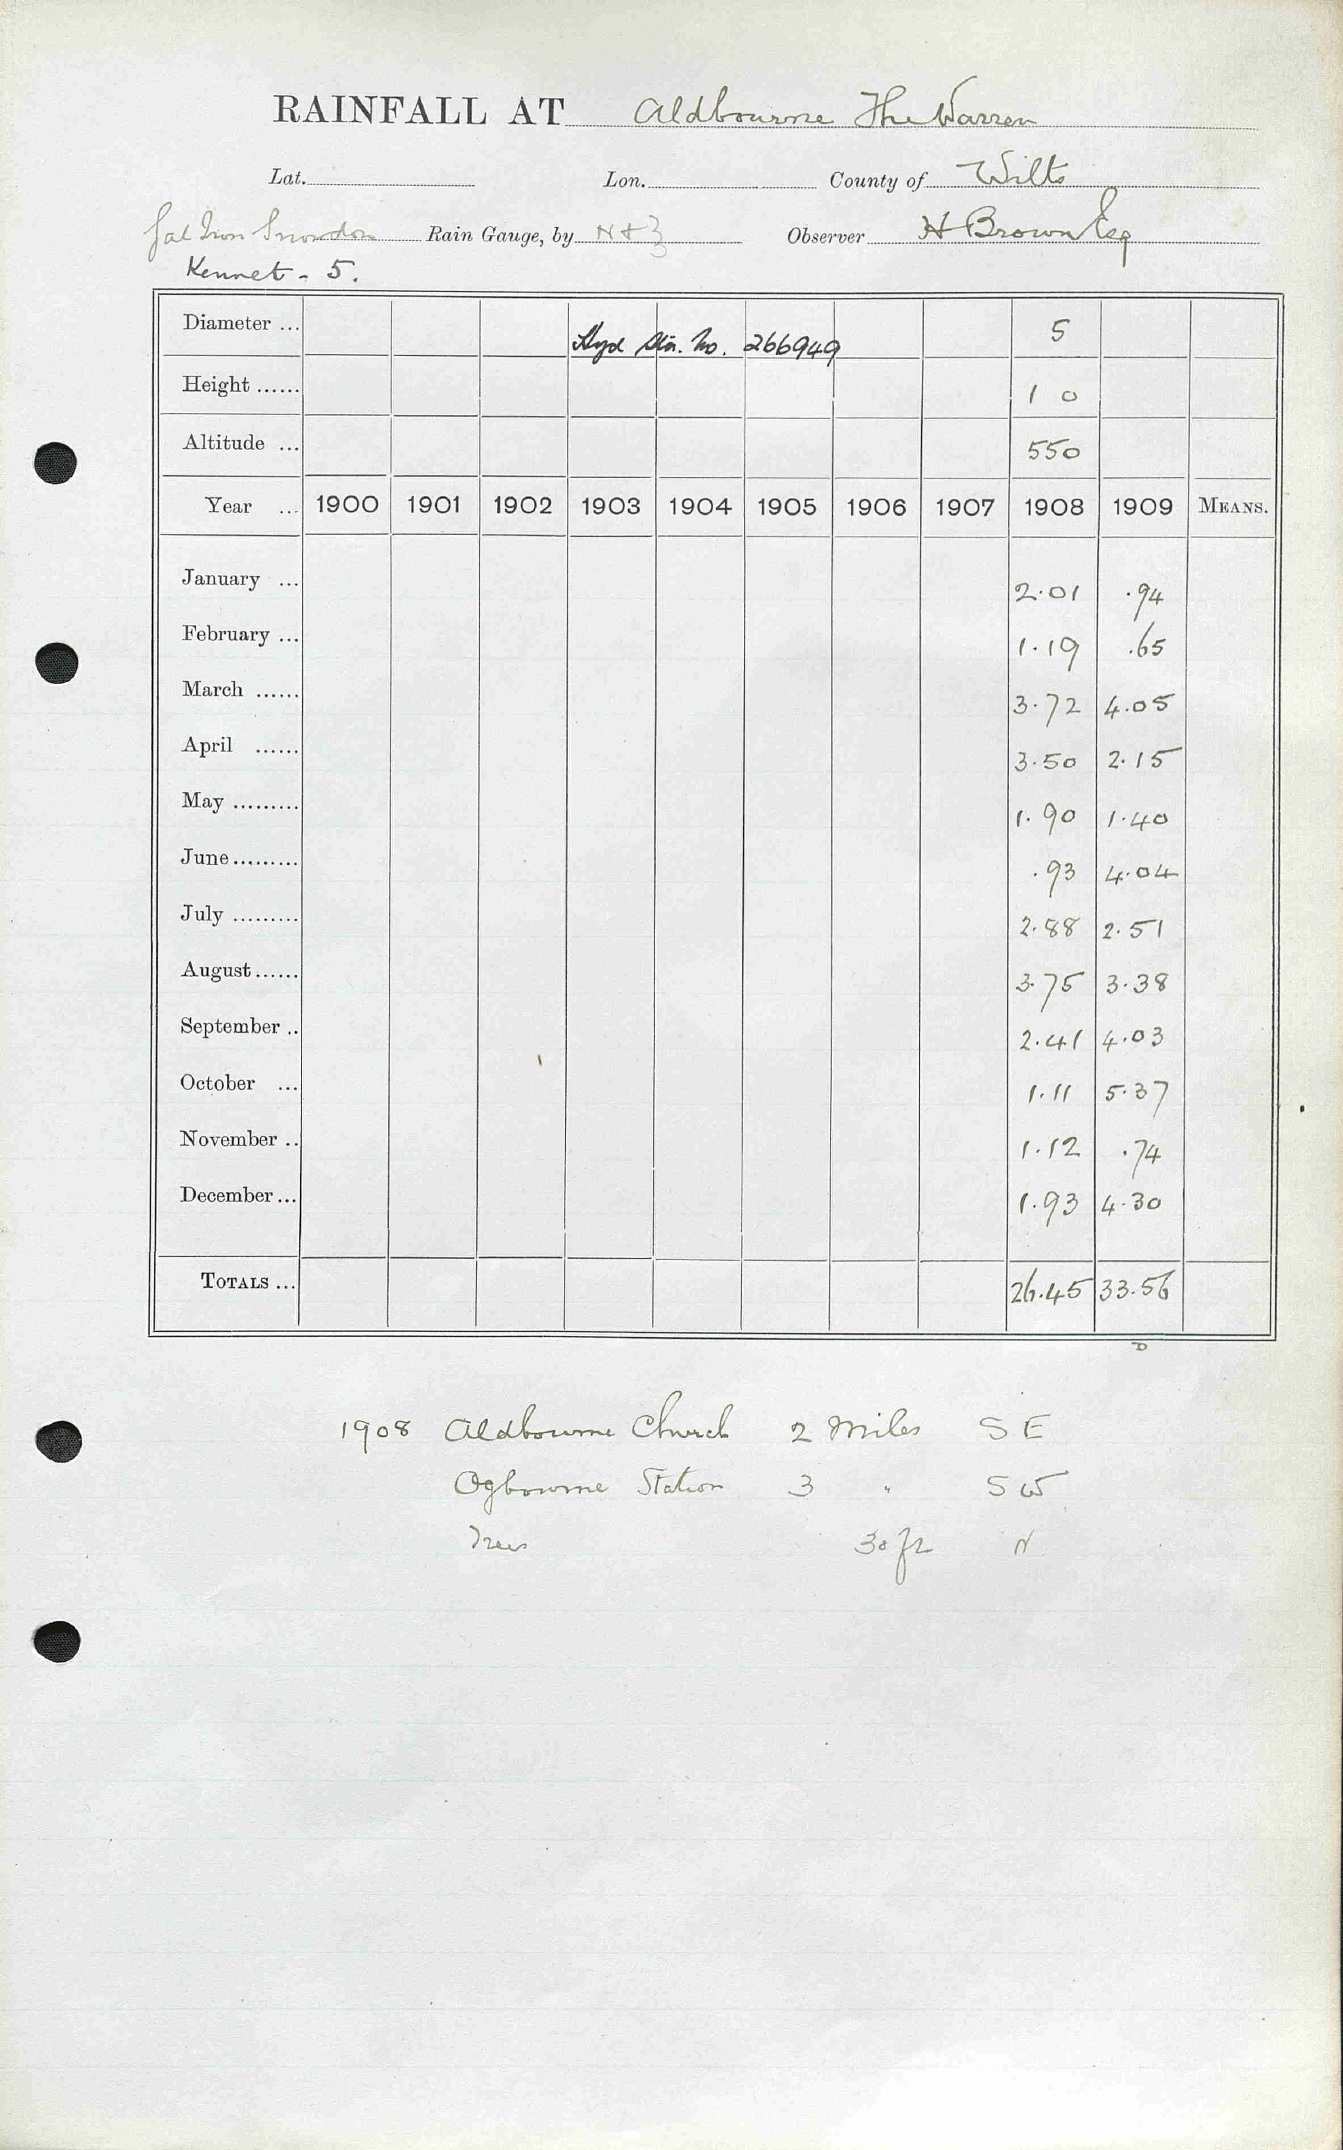 RAINFALL AT Aldbourne The Warren
Lat. Lon. County of Wilts
Gal Iron Snowdon Rain Gauge, by N & Z Observer H Brown Esq
Kennet - 5.
Diameter ... 5
Hyd Stn. No. 266949
Height ...... 1 0
Altitude ... 550
Year ... 1900 1901 1902 1903 1904 1905 1906 1907 1908 1909 MEANS.
January ... 2.01 .94
February ... 1.19 .65
March ...... 3.72 4.05
April ...... 3.50 2.15
May ......... 1.90 1.40
June ......... .93 4.04
July ......... 2.88 2.51
August ...... 3.75 3.38
September .. 2.41 4.03
October ... 1.11 5.37
November .. 1.12 .74
December ... 1.93 4.30
TOTALS ... 26.45 33.56
D
1908 Aldbourne Church 2 Miles S E
Ogbourne Station 3 " S W
Trees 30 ft N